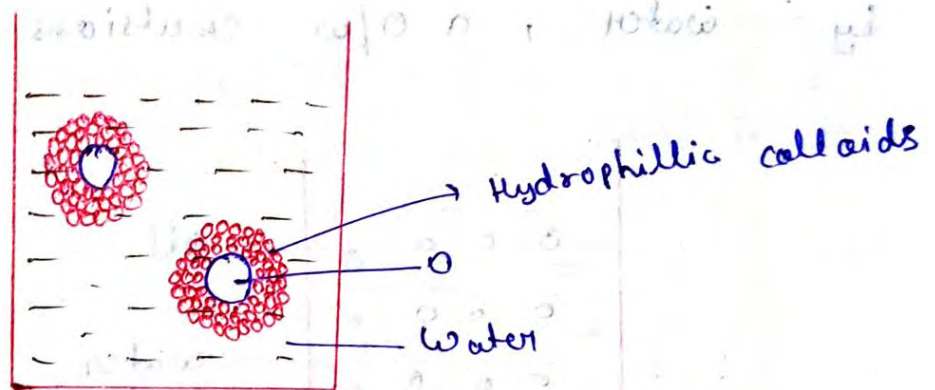 Hydrophillic colloids
O
Water